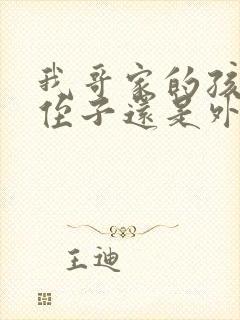 我哥家的孩
侄子還是外
王迪